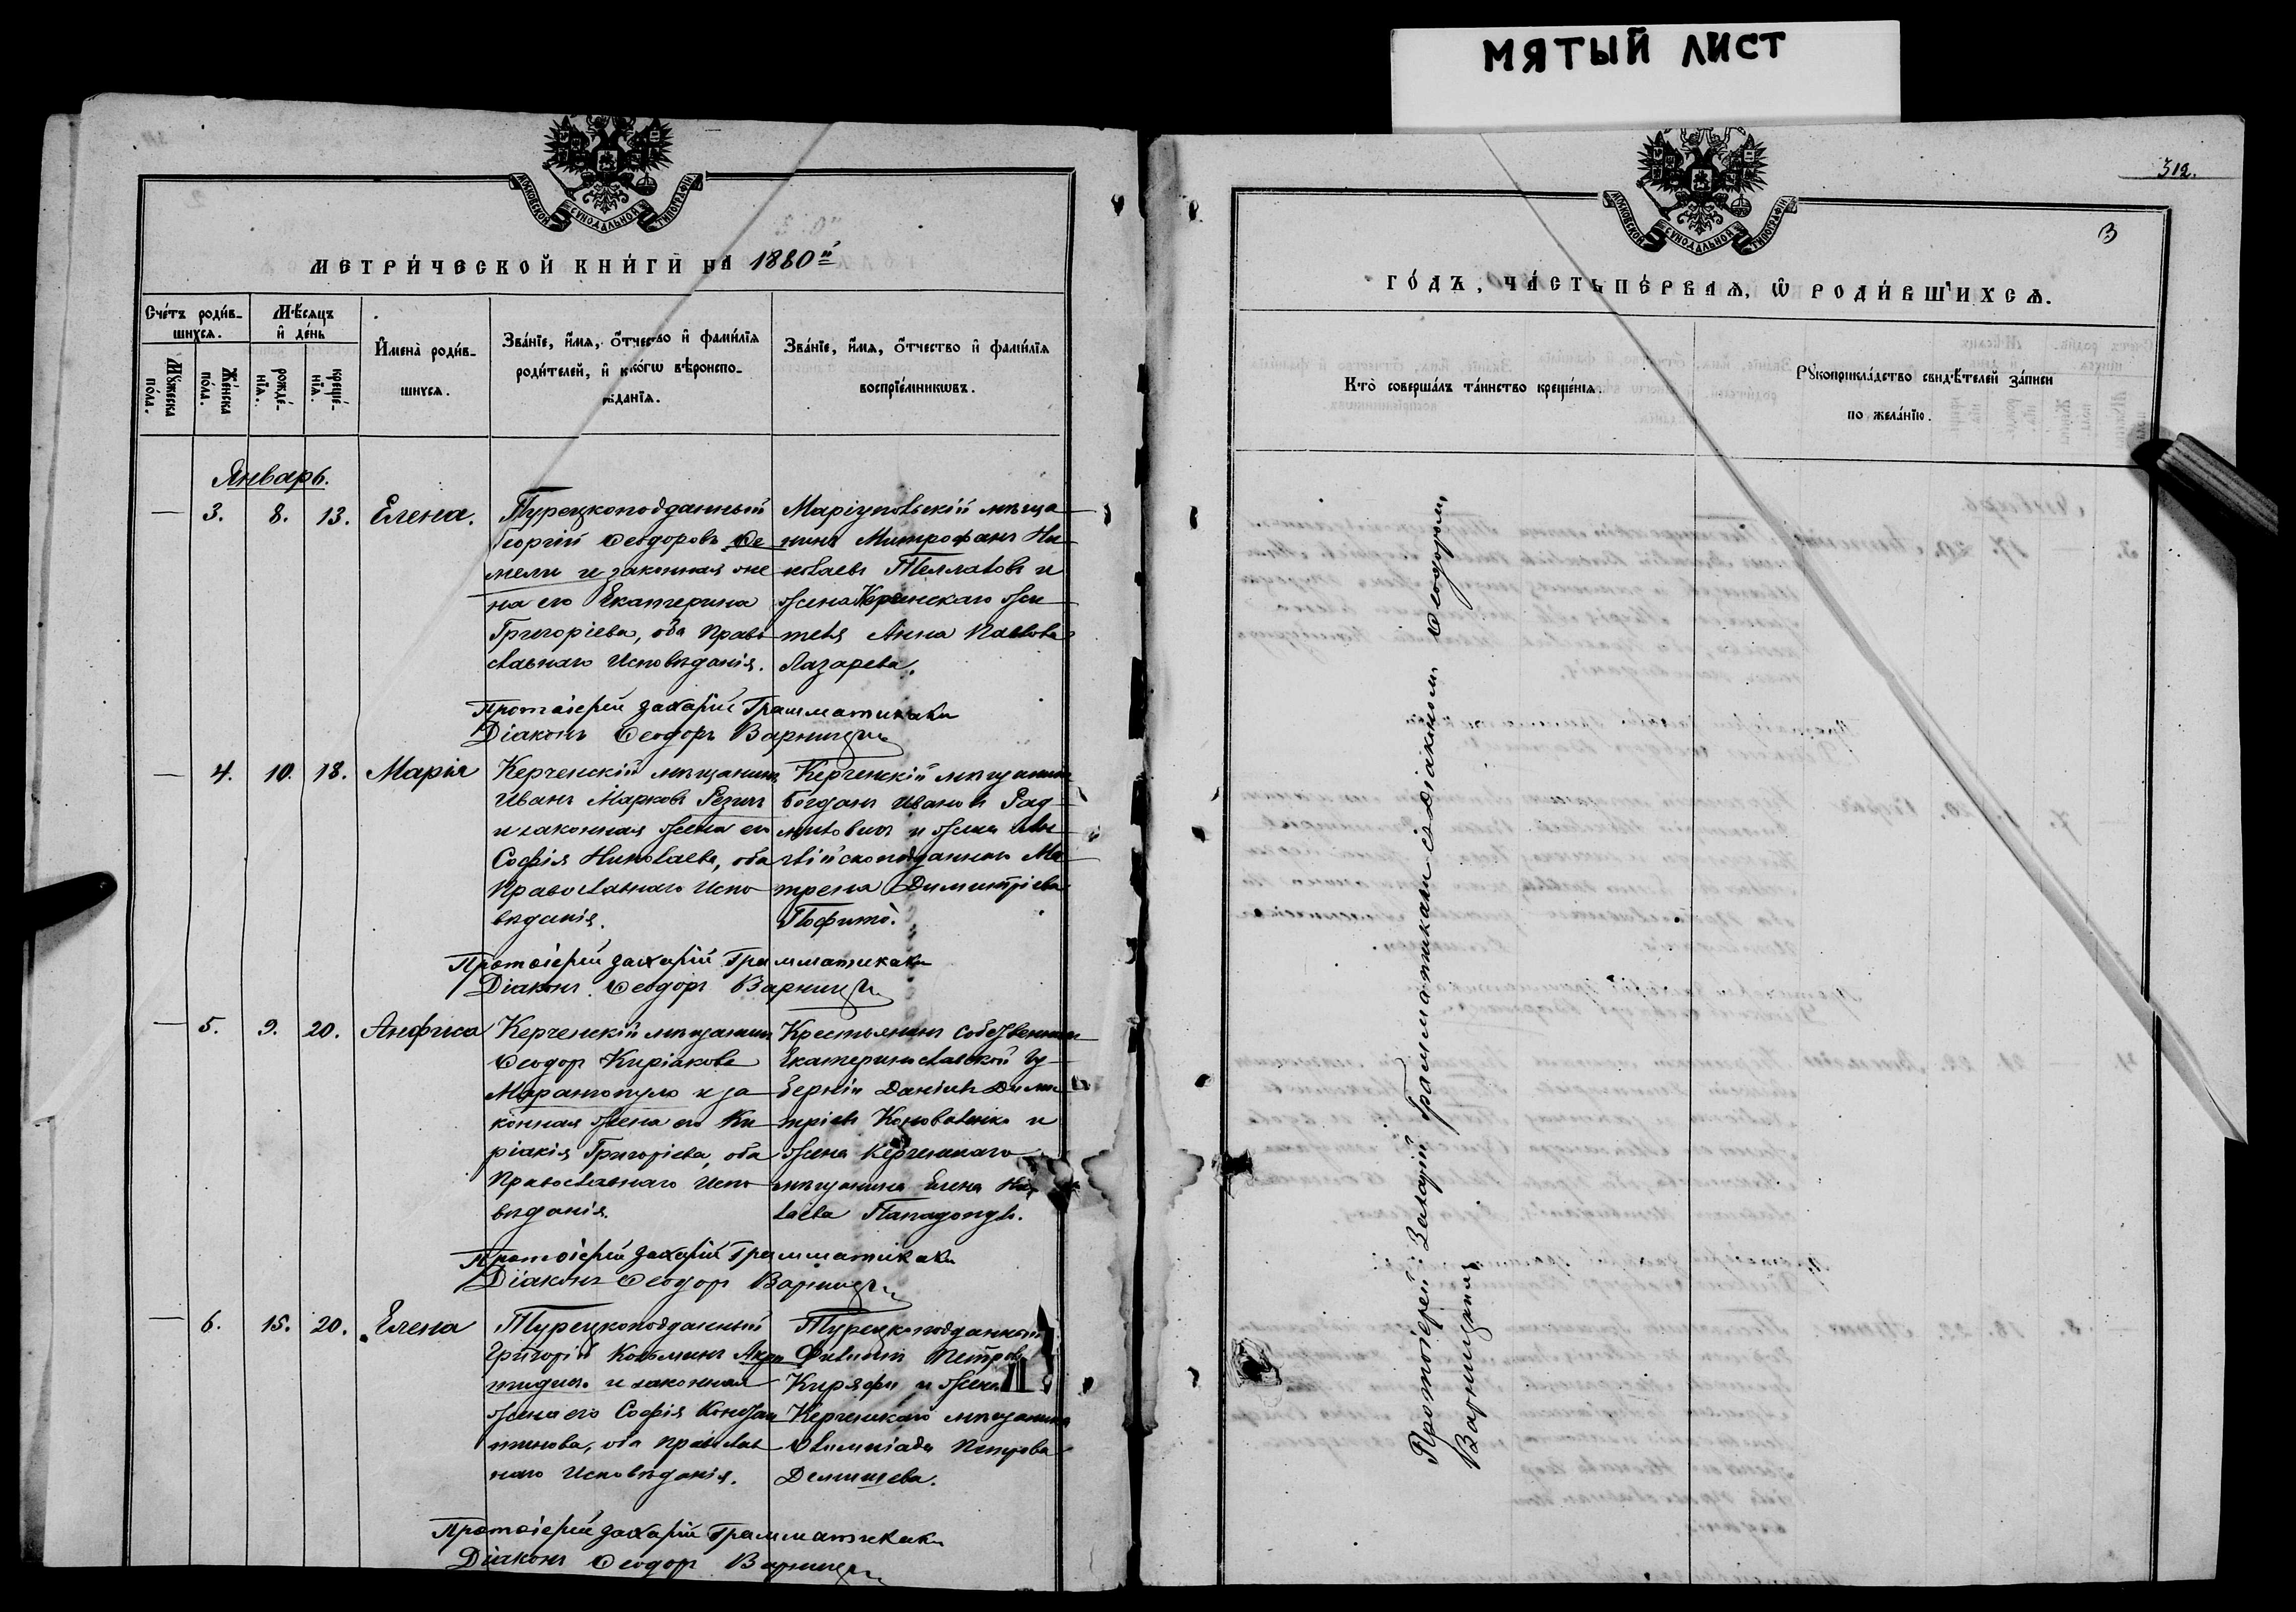 МЯТЫЙ ЛИСТ
МОСКОВСКОЙ СѴНОДАЛЬНОЙ ТИПОГРАФІИ
МЕТРИ́ЧЕСКОЙ КНИ́ГИ НА 1880й
Сче́тъ роди́в-
шихся.
Мѣ́сяцъ
и де́нь
Мꙋ́жеска
по́ла.
Же́нска
по́ла.
рожде́-
нїя.
креще́-
нїя.
И҆мена̀ роди́в-
шихся.
Зва́нїе, и҆́мя, ѻ҆́тчество и҆ фами́лїя
роди́телей, и҆ како́гѡ вѣроиспо-
вѣданїя.
Зва́нїе, и҆́мя, ѻ҆́тчество и҆ фами́лїя
воспрїе́мникѡвъ.
Январь.
— 3. 8. 13. Елена.
Турецкоподданный
Георгій Ѳеодоровъ Де
мели и законная же
на его Екатерина
Григоріева, оба Право
славнаго Исповѣданія.
Маріупольскій мѣща
нинъ Митрофанъ Ни
колаевъ Теллаловъ и
жена Керченскаго жи
теля Анна Павлова
Лазарева.
Протоіерей Захарій Грамматикаки
Діаконъ Ѳеодоръ Варницки
— 4. 10. 18. Марія
Керченскій мѣщанинъ
Иванъ Марковъ
и законная жена его
Софія Николаева, оба
Православнаго Испо
вѣданія.
Керченскій мѣщанинъ
Богданъ Ивановъ Рад
миловичъ и жена
Димитріева
Протоіерей Захарій Грамматикаки
Діаконъ Ѳеодоръ Варницки
— 5. 9. 20. Анфиса
Керченскій мѣщанинъ
Ѳеодоръ Киріаковъ
Марангопуло и за
конная жена его Ки
ріакія Григоріева, оба
Православнаго Испо
вѣданія.
Крестьянинъ собственникъ
Екатеринославской Гу
берніи Даніилъ Дими
тріевъ Коноваленко и
жена Керченскаго
мѣщанина Елена Ни
лаева
Протоіерей Захарій Грамматикаки
Діаконъ Ѳеодоръ Варницки
— 6. 15. 20. Елена
Турецкоподданный
Григорій Козьминъ Акри
тидисъ и законная
жена его Софія Констан
тинова, оба Православ
наго Исповѣданія.
Турецкоподданный
Филиппъ Петровъ
Киряфи и жена
Керченскаго мѣщанина
Олимпіада Петрова
Протоіерей Захарій Грамматикаки
Діаконъ Ѳеодоръ Варницки
312.
3
МОСКОВСКОЙ СѴНОДАЛЬНОЙ ТИПОГРАФІИ
ГО́ДЪ, ЧА́СТЬ ПЕ́РВАЯ, Ѡ҆ РОДИ́ВШИХСЯ.
Кто̀ соверша́лъ та́инство креще́нїя.
Рꙋкоприкла́дство свидѣ́телей за́писи
по жела́нїю.
Протоіерей Захарій Грамматикаки съ Діакономъ Ѳеодоромъ